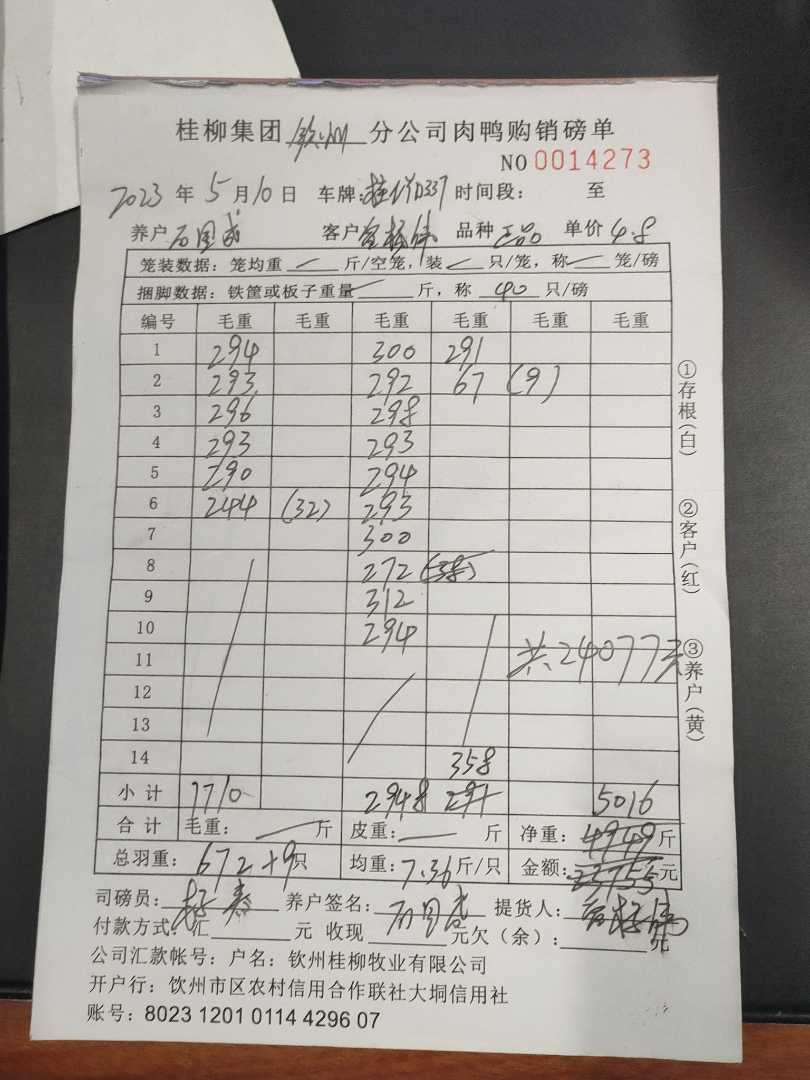 桂柳集团 钦州 分公司肉鸭购销磅单
NO 0014273
2023 年 5 月 10 日 车牌: 桂 D337 时间段: 至
养户 石国 客户 品种 正品 单价 4.8
笼装数据: 笼均重 斤/空笼, 装 只/笼, 称 笼/磅
捆脚数据: 铁筐或板子重量 斤, 称 40 只/磅
编号 毛重 毛重 毛重 毛重 毛重 毛重
1 294 300 291
2 293 292 67 (9)
3 296 298
4 293 293
5 290 294
6 244 (32) 293
7 300
8 272 (38)
9 312
10 294
11 共24077元
12
13
14 358
小计 1710 2948 291 5016
合计 毛重: 斤 皮重: 斤 净重: 4949 斤
总羽重: 672+9 只 均重: 7.36 斤/只 金额: 23755 元
司磅员: 养户签名: 石国 提货人:
付款方式: 汇 元 收现 元欠(余): 元
公司汇款帐号: 户名: 钦州桂柳牧业有限公司
开户行: 饮州市区农村信用合作联社大垌信用社
账号: 8023 1201 0114 4296 07
①存根(白)
②客户(红)
③养户(黄)